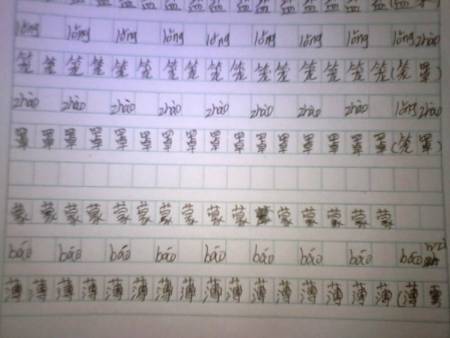 lǒng lǒng lǒng lǒng lǒng lǒng lǒng lǒng lǒng zhào
笼笼笼笼笼笼笼笼笼笼笼笼笼笼笼笼(笼罩)
zhào zhào zhào zhào zhào zhào zhào zhào lǒng zhào
罩罩罩罩罩罩罩罩罩罩罩罩罩罩罩罩(笼罩)
蒙蒙蒙蒙蒙蒙蒙蒙蒙蒙蒙蒙蒙蒙蒙蒙
báo báo báo báo báo báo báo báo báo
薄薄薄薄薄薄薄薄薄薄薄薄薄薄薄薄(薄